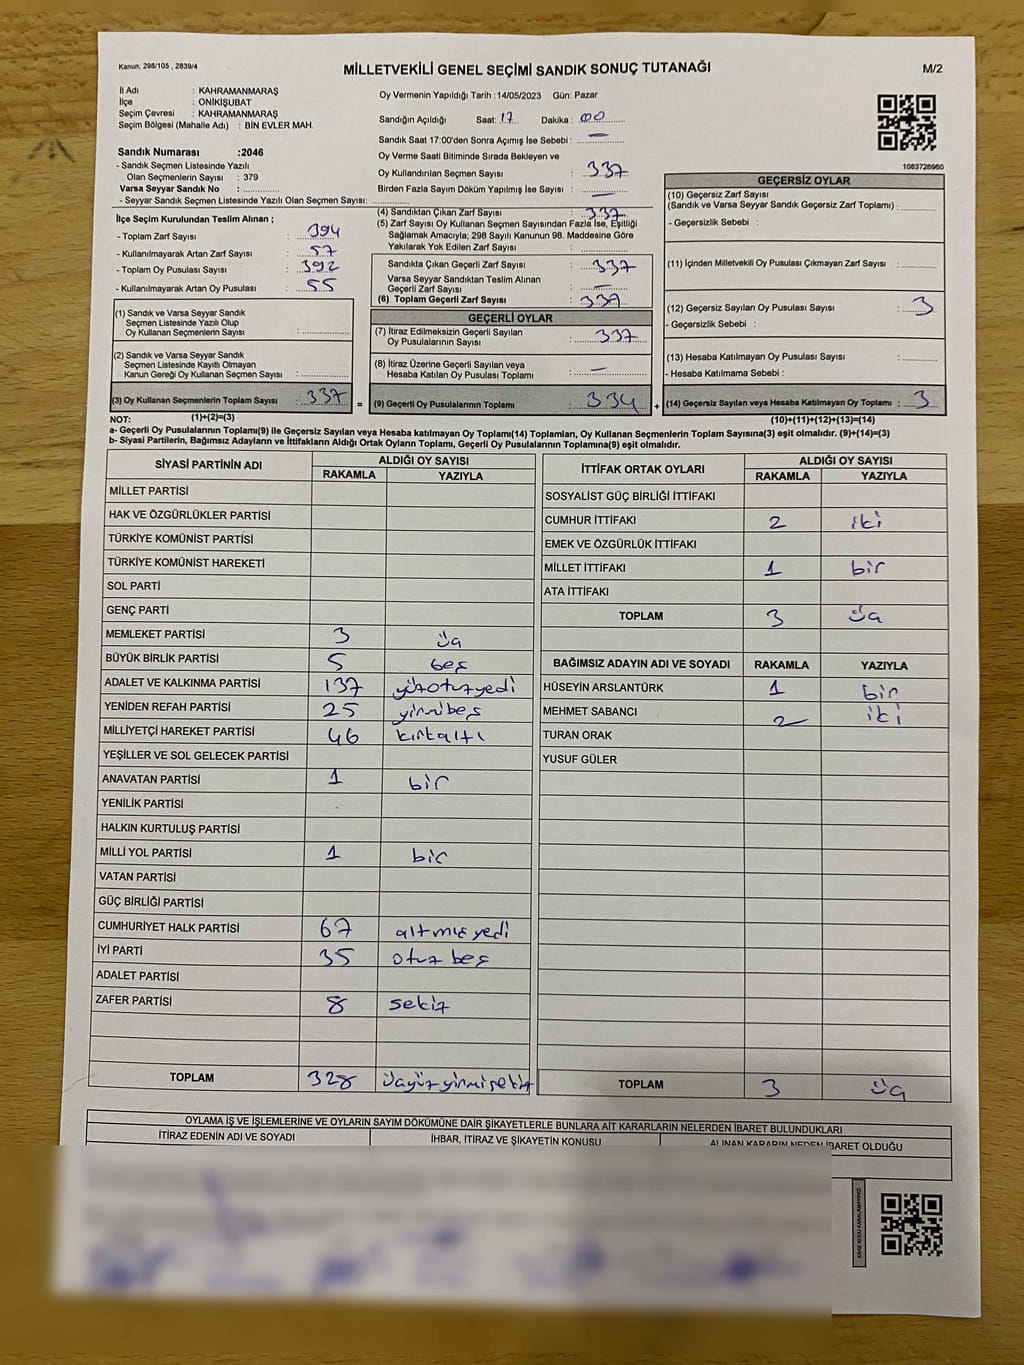 Kanun; 298/105 , 2839/4
MİLLETVEKİLİ GENEL SEÇİMİ SANDIK SONUÇ TUTANAĞI
M/2
İl Adı : KAHRAMANMARAŞ
İlçe : ONİKİŞUBAT
Seçim Çevresi : KAHRAMANMARAŞ
Seçim Bölgesi (Mahalle Adı) : BİN EVLER MAH.
Oy Vermenin Yapıldığı Tarih :14/05/2023 Gün: Pazar
Sandığın Açıldığı Saat: 17 Dakika : 00
Sandık Saat 17:00'den Sonra Açımış İse Sebebi : —
Oy Verme Saati Bitiminde Sırada Bekleyen ve
Oy Kullandırılan Seçmen Sayısı : 337
Birden Fazla Sayım Döküm Yapılmış İse Sayısı : —
Sandık Numarası :2046
- Sandık Seçmen Listesinde Yazılı
Olan Seçmenlerin Sayısı : 379
Varsa Seyyar Sandık No :
- Seyyar Sandık Seçmen Listesinde Yazılı Olan Seçmen Sayısı:
İlçe Seçim Kurulundan Teslim Alınan ;
- Toplam Zarf Sayısı : 394
- Kullanılmayarak Artan Zarf Sayısı : 57
- Toplam Oy Pusulası Sayısı : 392
- Kullanılmayarak Artan Oy Pusulası : 55
(1) Sandık ve Varsa Seyyar Sandık
Seçmen Listesinde Yazılı Olup
Oy Kullanan Seçmenlerin Sayısı :
(2) Sandık ve Varsa Seyyar Sandık
Seçmen Listesinde Kayıtlı Olmayan
Kanun Gereği Oy Kullanan Seçmen Sayısı :
(3) Oy Kullanan Seçmenlerin Toplam Sayısı : 337
(1)+(2)=(3)
(4) Sandıktan Çıkan Zarf Sayısı : 337
(5) Zarf Sayısı Oy Kullanan Seçmen Sayısından Fazla İse, Eşitliği
Sağlamak Amacıyla; 298 Sayılı Kanunun 98. Maddesine Göre
Yakılarak Yok Edilen Zarf Sayısı :
Sandıkta Çıkan Geçerli Zarf Sayısı : 337
Varsa Seyyar Sandıktan Teslim Alınan
Geçerli Zarf Sayısı : —
(6) Toplam Geçerli Zarf Sayısı : 337
GEÇERLİ OYLAR
(7) İtiraz Edilmeksizin Geçerli Sayılan
Oy Pusulalarının Sayısı : 337
(8) İtiraz Üzerine Geçerli Sayılan veya
Hesaba Katılan Oy Pusulası Toplamı : —
= (9) Geçerli Oy Pusulalarının Toplamı : 334
1083726960
GEÇERSİZ OYLAR
(10) Geçersiz Zarf Sayısı
(Sandık ve Varsa Seyyar Sandık Geçersiz Zarf Toplamı) :
- Geçersizlik Sebebi :
(11) İçinden Milletvekili Oy Pusulası Çıkmayan Zarf Sayısı :
(12) Geçersiz Sayılan Oy Pusulası Sayısı : 3
- Geçersizlik Sebebi :
(13) Hesaba Katılmayan Oy Pusulası Sayısı :
- Hesaba Katılmama Sebebi :
+ (14) Geçersiz Sayılan veya Hesaba Katılmayan Oy Toplamı : 3
(10)+(11)+(12)+(13)=(14)
NOT:
a- Geçerli Oy Pusulalarının Toplamı(9) ile Geçersiz Sayılan veya Hesaba katılmayan Oy Toplamı(14) Toplamları, Oy Kullanan Seçmenlerin Toplam Sayısına(3) eşit olmalıdır. (9)+(14)=(3)
b- Siyasi Partilerin, Bağımsız Adayların ve İttifakların Aldığı Ortak Oyların Toplamı, Geçerli Oy Pusulalarının Toplamına(9) eşit olmalıdır.
SİYASİ PARTİNİN ADI ALDIĞI OY SAYISI
RAKAMLA YAZIYLA
MİLLET PARTİSİ
HAK VE ÖZGÜRLÜKLER PARTİSİ
TÜRKİYE KOMÜNİST PARTİSİ
TÜRKİYE KOMÜNİST HAREKETİ
SOL PARTİ
GENÇ PARTİ
MEMLEKET PARTİSİ 3 üç
BÜYÜK BİRLİK PARTİSİ 5 beş
ADALET VE KALKINMA PARTİSİ 137 yüzotuzyedi
YENİDEN REFAH PARTİSİ 25 yirmibeş
MİLLİYETÇİ HAREKET PARTİSİ 46 kırkaltı
YEŞİLLER VE SOL GELECEK PARTİSİ
ANAVATAN PARTİSİ 1 bir
YENİLİK PARTİSİ
HALKIN KURTULUŞ PARTİSİ
MİLLİ YOL PARTİSİ 1 bir
VATAN PARTİSİ
GÜÇ BİRLİĞİ PARTİSİ
CUMHURİYET HALK PARTİSİ 67 altmış yedi
İYİ PARTİ 35 otuz beş
ADALET PARTİSİ
ZAFER PARTİSİ 8 sekiz
TOPLAM 328 üçyüzyirmisekiz
İTTİFAK ORTAK OYLARI ALDIĞI OY SAYISI
RAKAMLA YAZIYLA
SOSYALİST GÜÇ BİRLİĞİ İTTİFAKI
CUMHUR İTTİFAKI 2 iki
EMEK VE ÖZGÜRLÜK İTTİFAKI
MİLLET İTTİFAKI 1 bir
ATA İTTİFAKI
TOPLAM 3 üç
BAĞIMSIZ ADAYIN ADI VE SOYADI RAKAMLA YAZIYLA
HÜSEYİN ARSLANTÜRK 1 bir
MEHMET SABANCI 2 iki
TURAN ORAK
YUSUF GÜLER
TOPLAM 3 üç
OYLAMA İŞ VE İŞLEMLERİNE VE OYLARIN SAYIM DÖKÜMÜNE DAİR ŞİKAYETLERLE BUNLARA AİT KARARLARIN NELERDEN İBARET BULUNDUKLARI
İTİRAZ EDENİN ADI VE SOYADI İHBAR, İTİRAZ VE ŞİKAYETİN KONUSU ALINAN KARARIN NEDEN İBARET OLDUĞU
KARE KODU KARALAMAYINIZ!